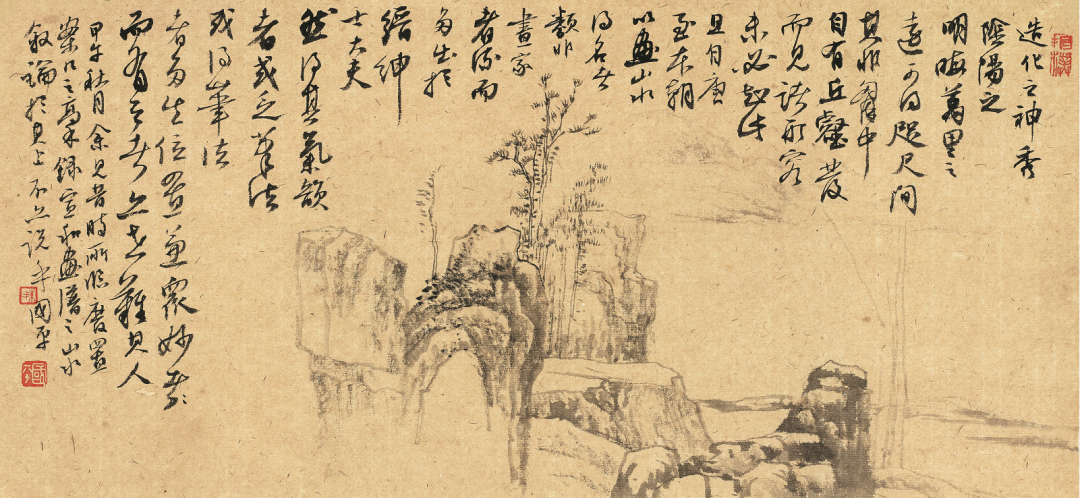 造化之神秀
陰陽之
明晦萬里之
遠可得咫尺間
其非胸中
自有丘壑發
而見諸形容
未必知此
且自唐
至本朝
以畫山水
得名者
類非
畫家
者流而
多出於
縉紳
士大夫
然得其氣韻
者或乏筆法
或得筆法
者多失位置兼眾妙
而有之者亦世難其人
甲午秋月余見昔時所臨廢置
案 之 錄宣和畫譜之山水
敘論於其上不亦說乎國平